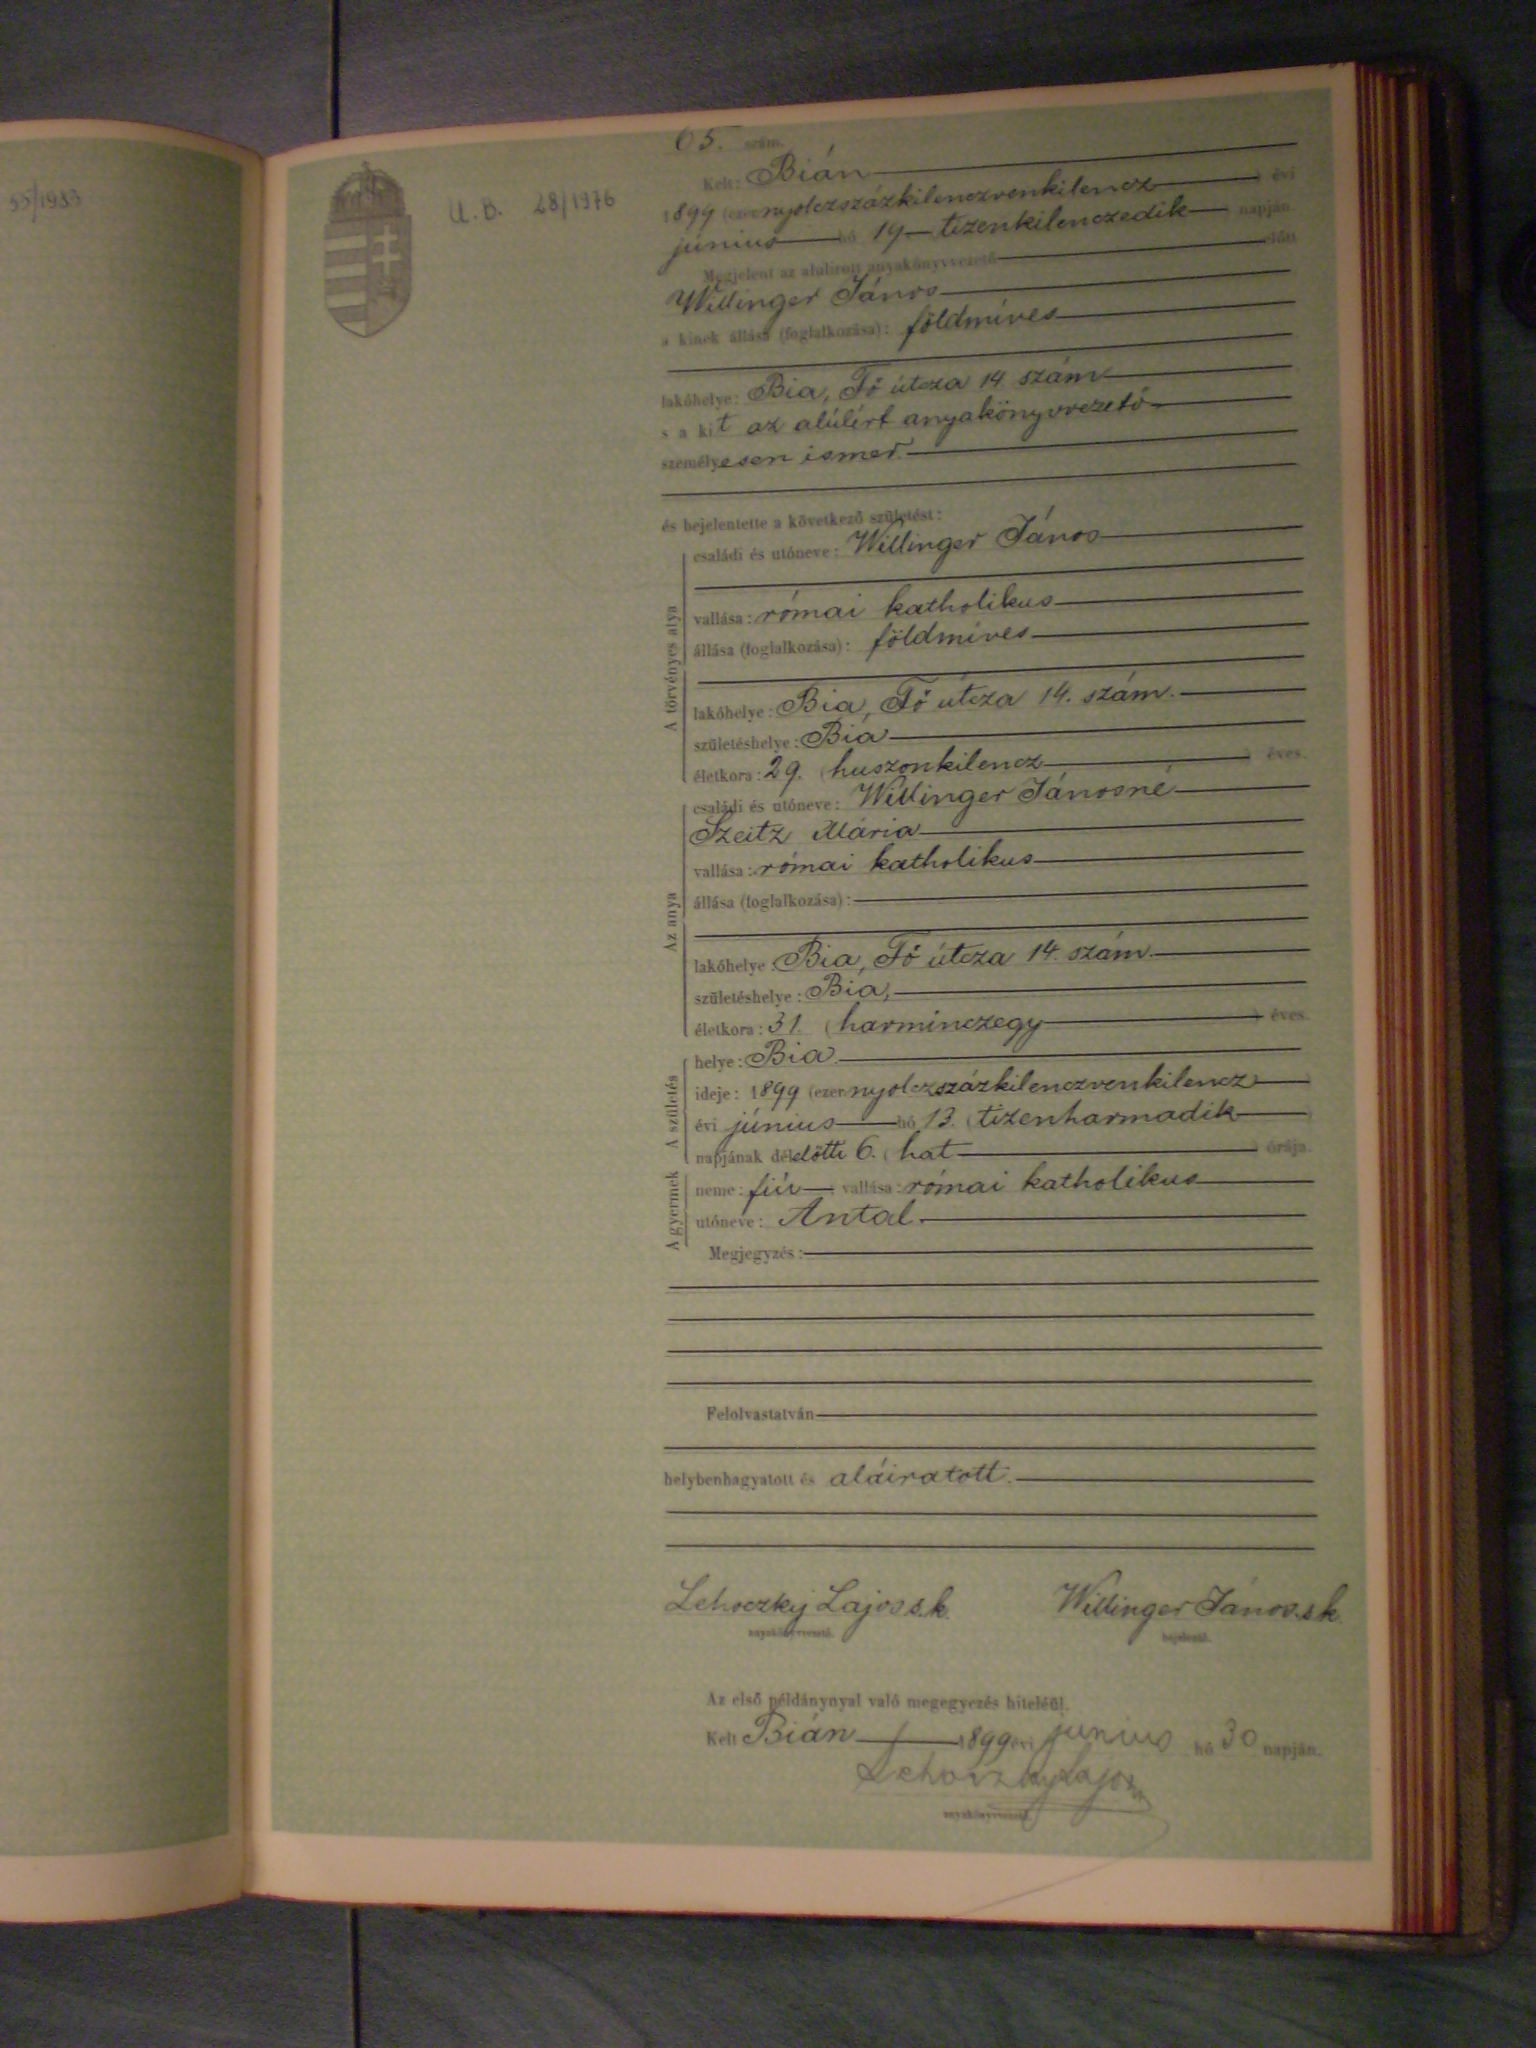 55/1983
U. B. 28/1976
65. szám.
Kelt: Bián
1899 (ezernyolczszázkilenczvenkilencz) évi
június hó 19. (tizenkilenczedik) napján.
Megjelent az alulirott anyakönyvvezető előtt
Willinger János
a kinek állása (foglalkozása): földmíves
lakóhelye: Bia, Fő útcza 14 szám
s a kit az alúlírt anyakönyvvezető
személyesen ismer.
és bejelentette a következő születést:
A törvényes atya
családi és utóneve: Willinger János
vallása: római katholikus
állása (foglalkozása): földmíves
lakóhelye: Bia, Fő útcza 14. szám.
születéshelye: Bia
életkora: 29. (huszonkilencz) éves.
Az anya
családi és utóneve: Willinger Jánosné
Szeitz Mária
vallása: római katholikus
állása (foglalkozása):
lakóhelye: Bia, Fő útcza 14. szám
születéshelye: Bia,
életkora: 31. (harminczegy) éves.
A születés
helye: Bia.
ideje: 1899 (ezernyolczszázkilenczvenkilencz)
évi június hó 13. (tizenharmadik)
napjának délelőtti 6. (hat) órája.
A gyermek
neme: fiú; vallása: római katholikus
utóneve: Antal.
Megjegyzés:
Felolvastatván
helybenhagyatott és aláiratott.
Lehoczky Lajos s.k. Willinger János s.k.
anyakönyvvezető. bejelentő.
Az első példánynyal való megegyezés hiteléül.
Kelt Bián 1899 évi június hó 30 napján.
Lehoczky Lajos
anyakönyvvezető.